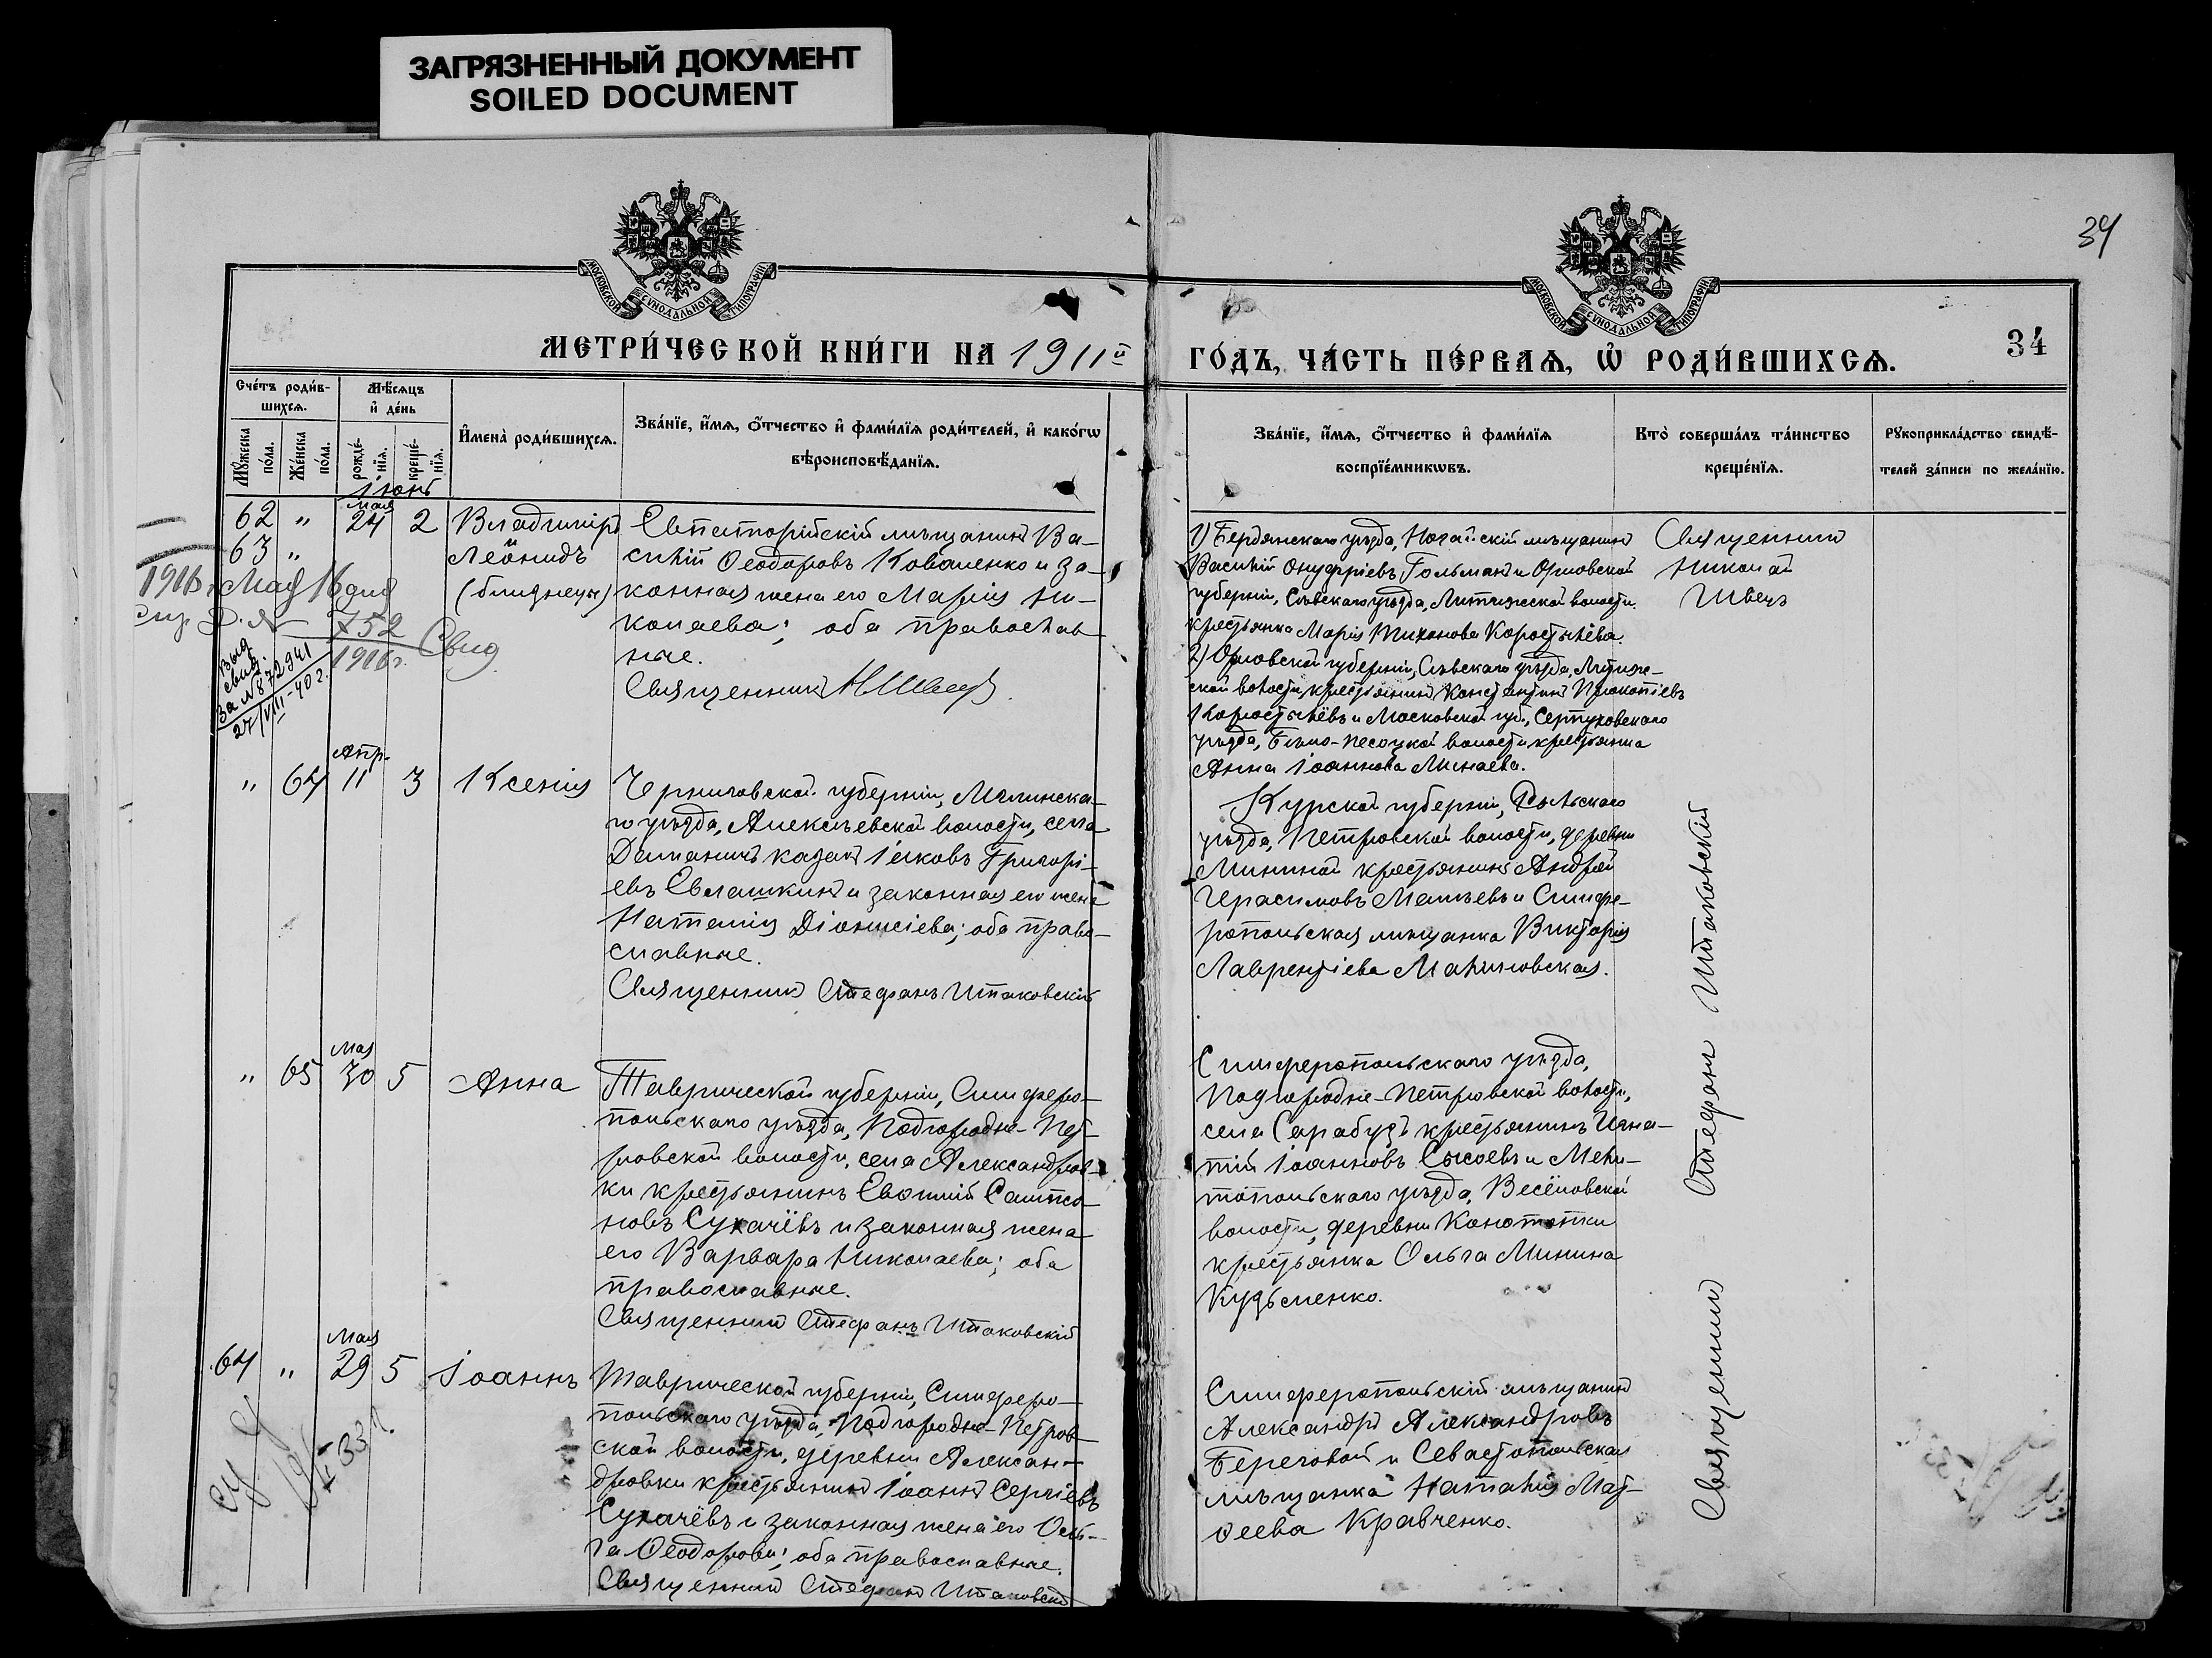 ЗАГРЯЗНЕННЫЙ ДОКУМЕНТ
SOILED DOCUMENT
34
МОСКОВСКОЙ СѴНОДАЛЬНОЙ ТИПОГРАФІИ
МОСКОВСКОЙ СѴНОДАЛЬНОЙ ТИПОГРАФІИ
МЕТРИ́ЧЕСКОЙ КНИ́ГИ НА 1911й
ГО́ДЪ, ЧА́СТЬ ПЕ́РВАѦ, Ѡ҆ РОДИ́ВШИХСѦ.
34
Сче́тъ роди́в-
шихсѧ.
Мѣ́сѧцъ
и҆ де́нь
Мꙋ́жеска
по́ла.
Же́нска
по́ла.
рожде́-
нїѧ.
креще́-
нїѧ.
И҆мена̀ роди́вшихсѧ.
Зва́нїе, и҆́мѧ, ѻ҆́тчество и҆ фами́лїѧ роди́телей, и҆ како́гѡ
вѣроисповѣ́данїѧ.
Зва́нїе, и҆́мѧ, ѻ҆́тчество и҆ фами́лїѧ
воспрїе́мникѡвъ.
Кто̀ соверша́лъ та́инство
креще́нїѧ.
Рꙋкоприкла́дство свидѣ́-
телей за́писи по жела́нїю.
Іюнь
Мая
62 " 24 2 Владиміръ
63 " Леонидъ
(близнецы)
Евпаторійскій мѣщанинъ Ва-
силій Ѳеодоровъ Коваленко и за-
конная жена его Марія Ни-
колаева; оба православ-
ные.
Священникъ Н Швецъ
1) Бердянскаго уѣзда, Ногайскій мѣщанинъ
Василій Онуфріевъ Гольманъ и Орловской
губерніи, Сѣвскаго уѣзда, Литижской волости
крестьянка Марія Тихонова Коростелёва.
2) Орловской губерніи, Сѣвскаго уѣзда, Литиж-
ской волости, крестьянинъ Константинъ Прокопіевъ
Коростелёвъ и Московской губ., Серпуховскаго
уѣзда, Бѣло-Песоцкой волости крестьянка
Анна Іоаннова Минаева.
Священникъ
Николай
Швецъ
1916 г. Мая 16 дня
752
1916 г. Свид
Выд.
свид.
за № 872941
27/VIII-40 г.
Апр.
" 64 11 3 Ксенія
Черниговской губерніи, Мглинска-
го уѣзда, Алексѣевской волости, села
Деманичъ казакъ Іаковъ Григорі-
евъ Евлашкинъ и законная его жена
Наталія Діонисіева; оба право-
славные.
Священникъ Стефанъ Штаковскій
Курской губерніи, Рыльскаго
уѣзда, Петровской волости, деревни
Мининой крестьянинъ Андрей
Герасимовъ Матвѣевъ и Симфе-
ропольская мѣщанка Викторія
Лаврентіева Малиновская.
Мая
" 65 30 5 Анна
Таврической губерніи, Симферо-
польскаго уѣзда, Подгородне-Пет-
ровской волости, села Александров-
ки крестьянинъ Евѳимій Сампсо-
новъ Сукачёвъ и законная жена
его Варвара Николаева; оба
православные.
Священникъ Стефанъ Штаковскій
Симферопольскаго уѣзда,
Подгородне-Петровской волости,
села Сарабузъ крестьянинъ Игна-
тій Іоанновъ Сысоевъ и Мели-
топольскаго уѣзда, Весёловской
волости, деревни Конотопки
крестьянка Ольга Минина
Кузьменко.
Мая
64 " 29 5 Іоаннъ
Таврической губерніи, Симферо-
польскаго уѣзда, Подгородне-Петров-
ской волости, деревни Алексан-
дровки крестьянинъ Іоаннъ Сергіевъ
Сукачёвъ и законная жена его Оль-
га Ѳеодорова; оба православные.
Священникъ Стефанъ Штаковскій
Симферопольскій мѣщанинъ
Александръ Александровъ
Береговой и Севастопольская
мѣщанка Наталія Мат-
ѳеева Кравченко.
Священникъ Стефанъ Штаковскій